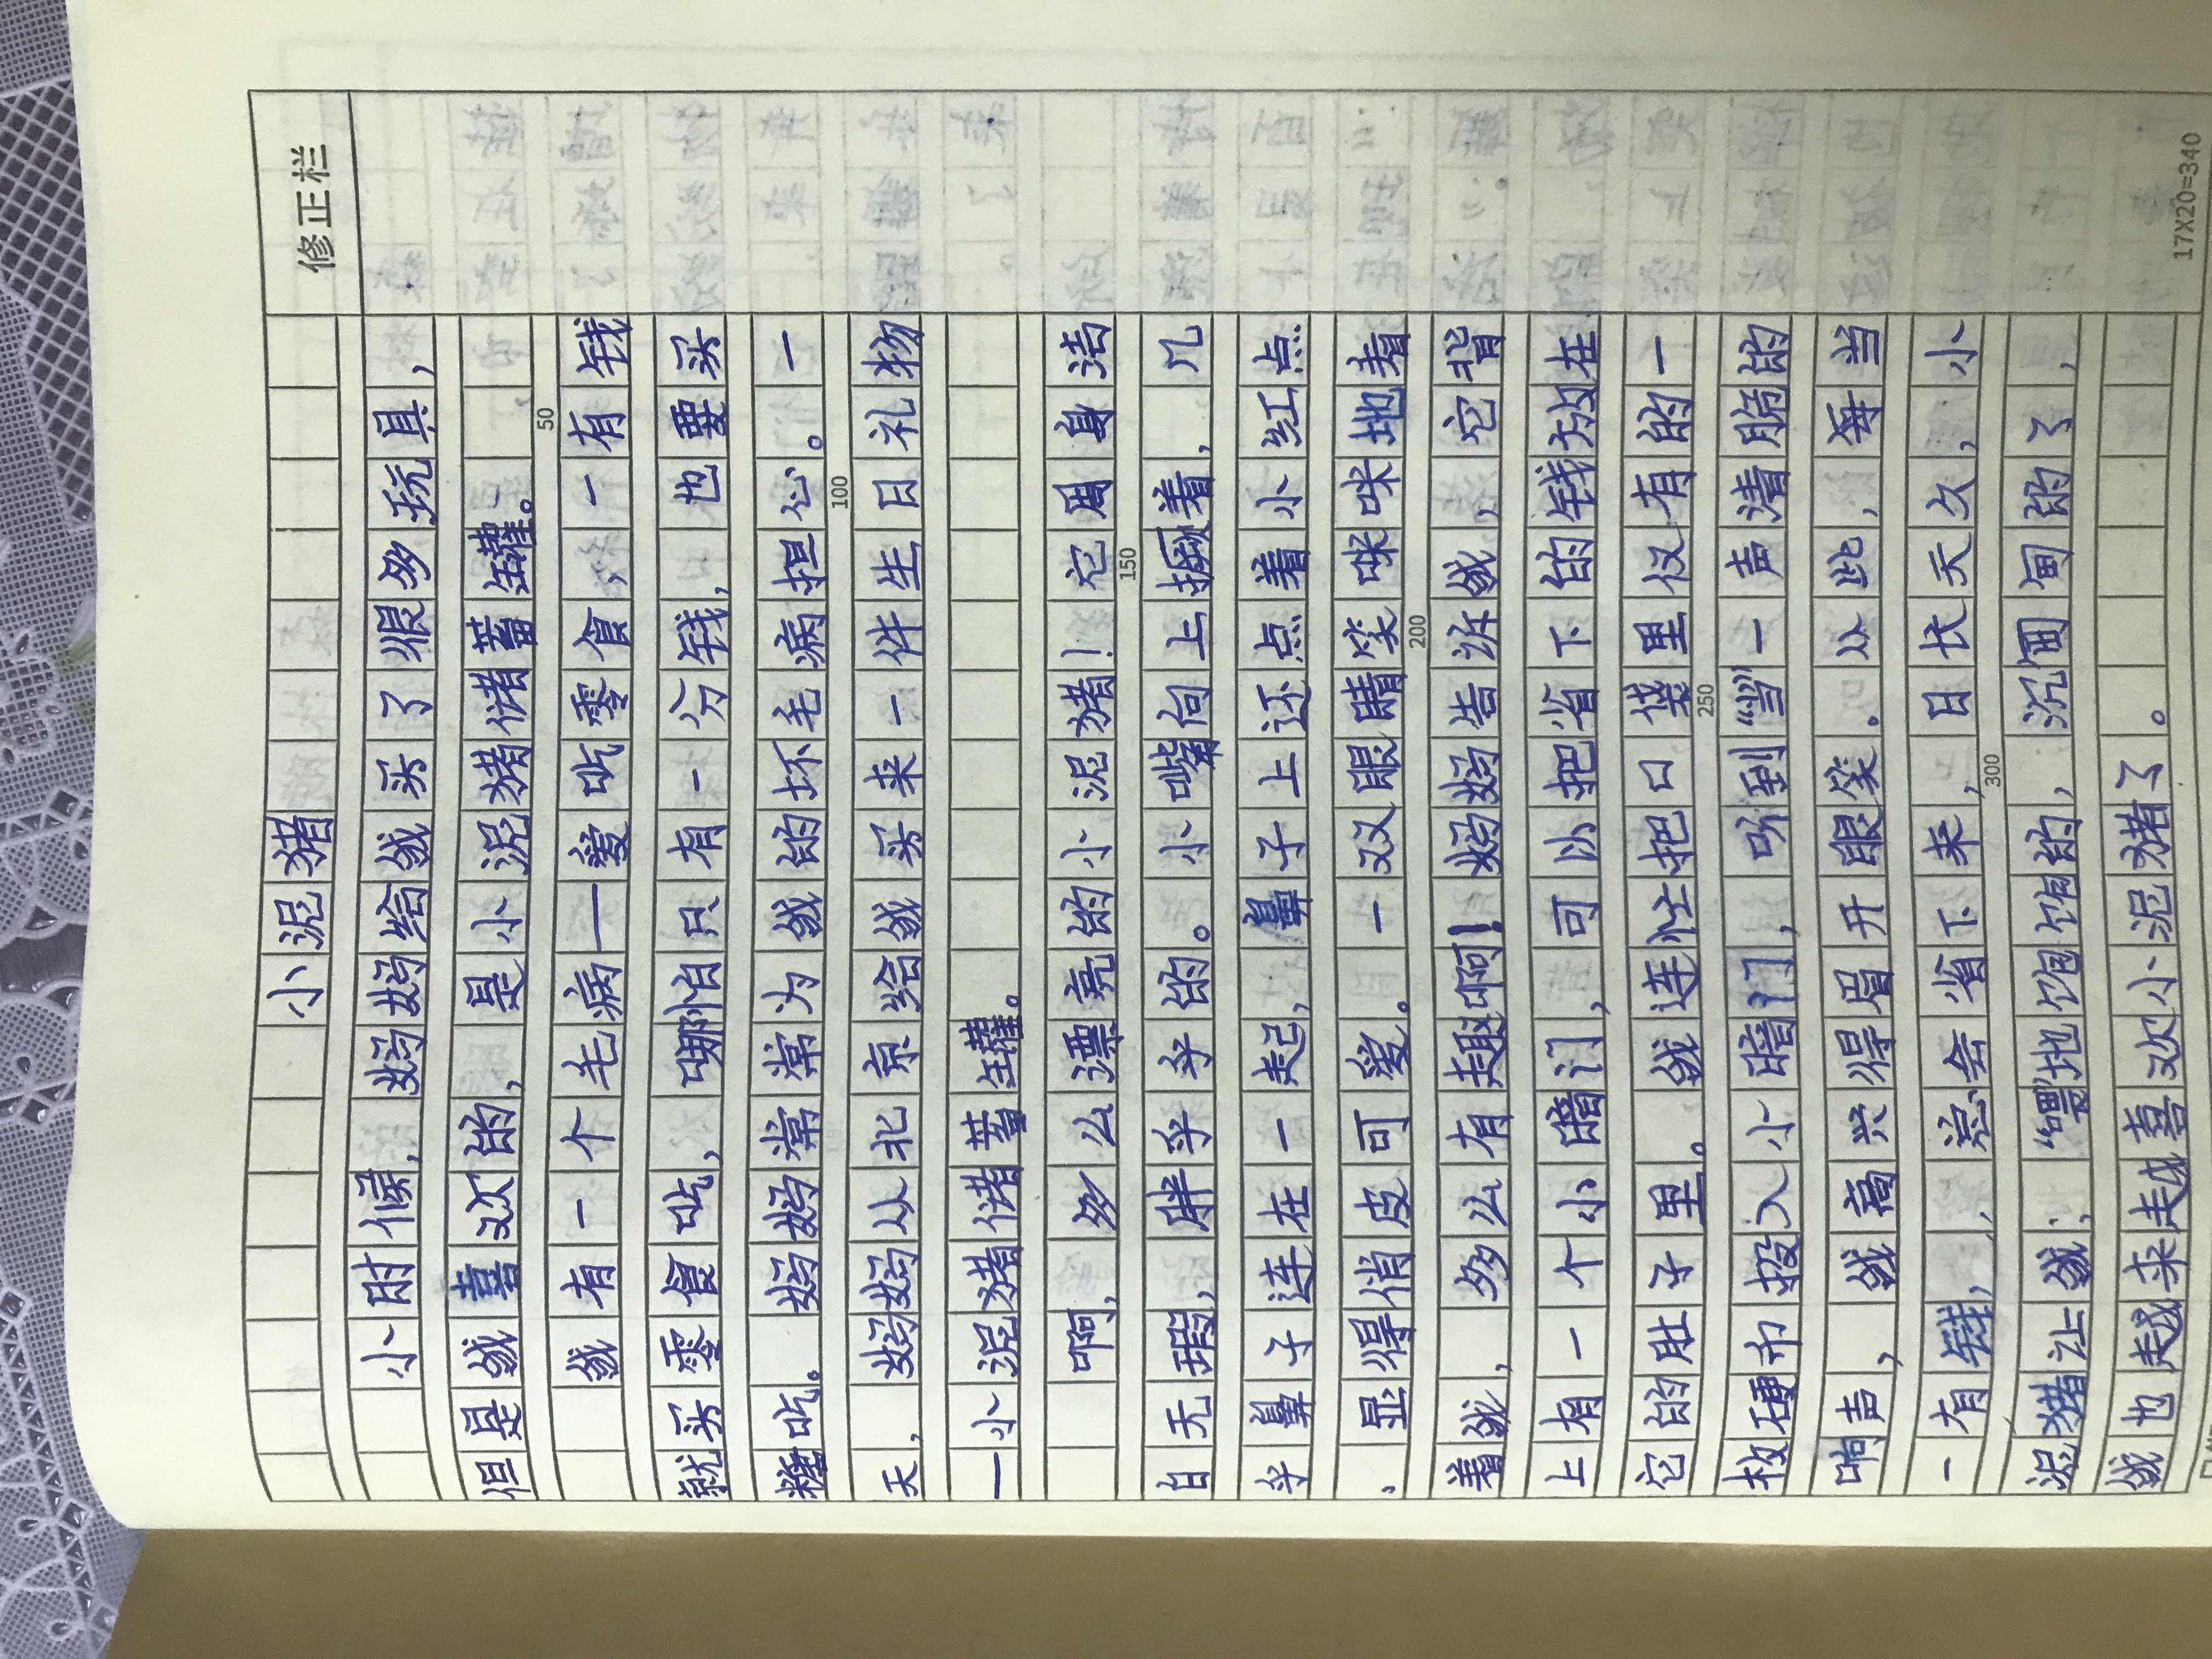 修正栏
小泥猪
小时候，妈妈给我买了很多玩具，
但是我喜欢的，是小泥猪储蓄罐。
50
我有一个毛病——爱吃零食，一有钱
就买零食吃，哪怕只有一分钱，也要买
糖吃。妈妈常常为我的坏毛病担心。一
100
天，妈妈从北京给我买来一件生日礼物
——小泥猪储蓄罐。
啊，多么漂亮的小泥猪！它周身洁
150
白无瑕，胖乎乎的。小嘴向上撅着，几
乎鼻子连在一起，鼻子上还点着小红点
，显得俏皮可爱。一双眼睛笑咪咪地看
200
着我，多么有趣啊！妈妈告诉我，它背
上有一个小暗门，可以把省下的钱放在
它的肚子里。我连忙把口袋里仅有的一
250
枚硬币投入小暗门，听到“当”一声清脆的
响声，我高兴得眉开眼笑。从此，每当
一有钱，总会省下来，日长天久，小
300
泥猪让我“喂”地饱饱的，沉甸甸的了，
我也越来越喜欢小泥猪了。
17X20=340